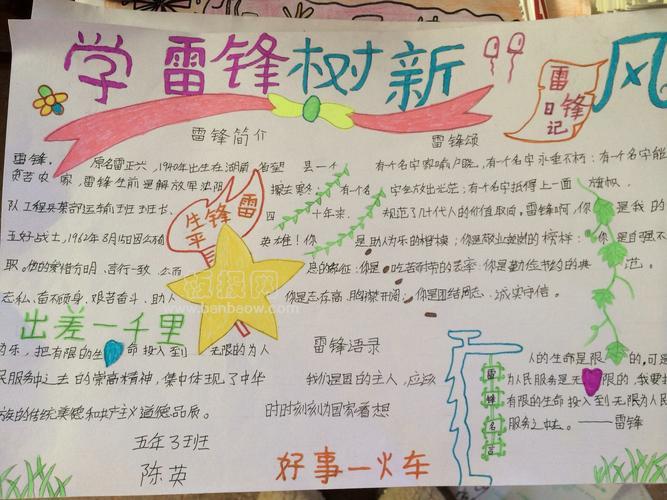 学雷锋树新风
雷锋日记
雷锋简介
雷锋颂
雷锋,原名雷正兴,1940年出生在湖南省望 县一个
贫苦农家,雷锋生前是解放军沈阳
队工程兵某部运输班班长
五好战士,1962年8月15日因公殉
取。他的爱憎分明、言行一致、公而
忘私、奋不顾身、艰苦奋斗、助人
雷锋生平
有个名字家喻户晓,有个名字永垂不朽;有个名字能
有个名字生放出光茫;有个名字抵得上一面 旗帜
四 十年来, 规范了几代人的价值取向,雷锋啊,你 是我的
英雄!你 是助人为乐的楷模;你是敬业 的榜样;你是自强不
息的象征;你是吃苦耐劳的 ;你是勤俭节约的典 范。
你是志存高 胸襟开阔;你是团结同志、诚实守信。
板报网
www.banbaow.com
出差一千里
为乐,把有限的生命投入到 无限的为人
民服务中去的崇高精神,集中体现了中华
族的传统美德和共产主义道德品质。
五年3班
陈英
雷锋语录
我们是国的主人,应该
时时刻刻为国家着想
好事一火车
雷锋名言
人的生命是限 的,可是
为人民服务是无 限的,我要把
有限的生命投入到无限为人民
服务之中去。——雷锋